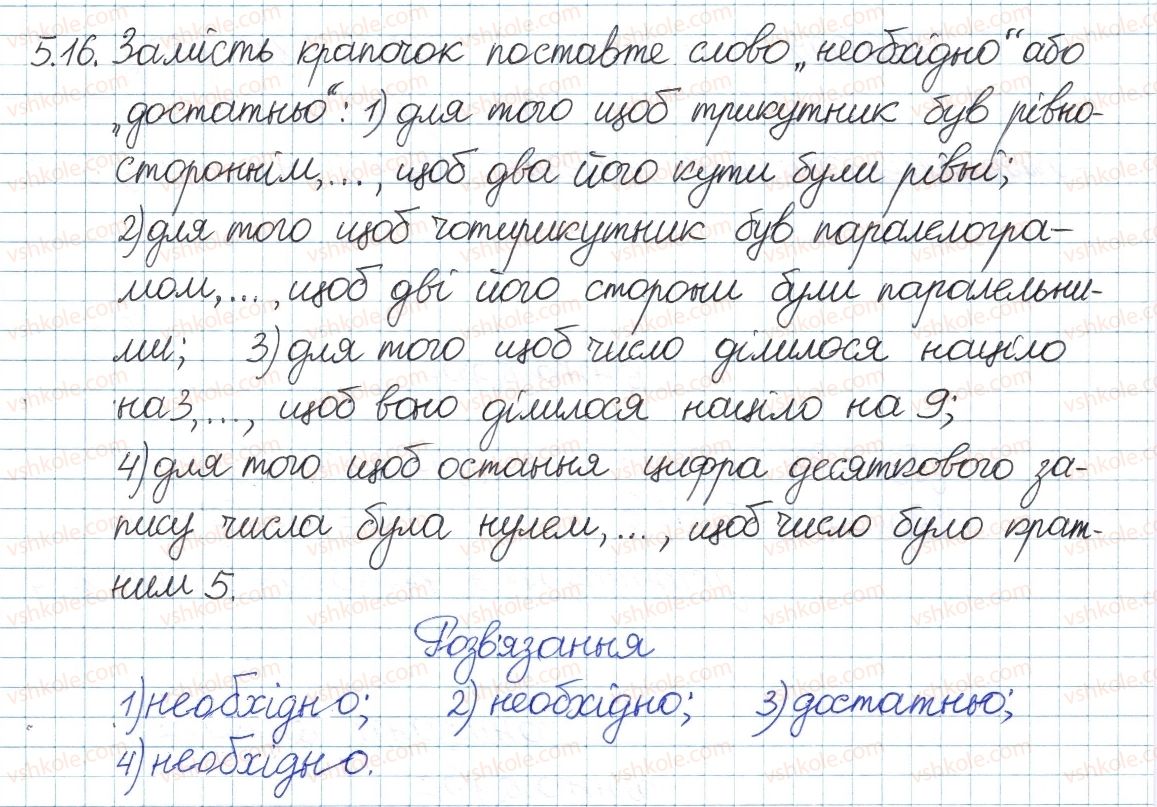 5.16. Замість крапочок поставте слово „необхідно“ або
„достатньо“: 1) для того щоб трикутник був рівно-
стороннім,..., щоб два його кути були рівні;
2) для того щоб чотирикутник був паралелогра-
мом,..., щоб дві його сторони були паралельни-
ми; 3) для того щоб число ділилося націло
на 3,..., щоб воно ділилося націло на 9;
4) для того щоб остання цифра десяткового за-
пису числа була нулем,..., щоб число було крат-
ним 5.
Розв'язання
1) необхідно; 2) необхідно; 3) достатньо;
4) необхідно.